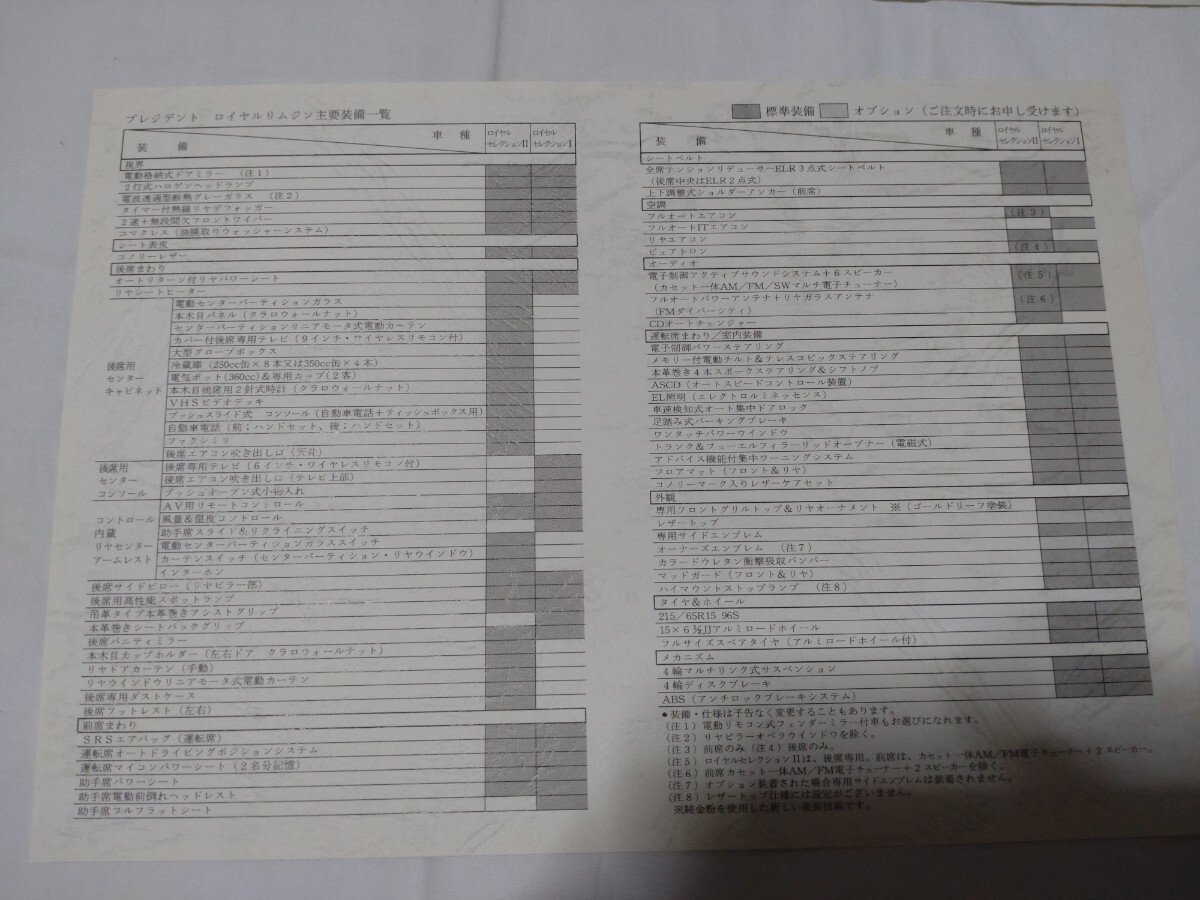 プレジデント ロイヤルリムジン主要装備一覧
装備 車種 ロイヤルセレクションII ロイヤルセレクションI
視界
電動格納式ドアミラー (注1)
2灯式ハロゲンヘッドランプ
電波透過型断熱グレーガラス (注2)
タイマー付熱線リヤデフォッガー
2連+無段間欠フロントワイパー
コマクレス(油膜取りウォッシャーシステム)
シート表皮
コノリーレザー
後席まわり
オートリターン付リヤパワーシート
リヤシートヒーター
後席用センターキャビネット
電動センターパーティションガラス
本木目パネル(クラロウォールナット)
センターパーティションリニアモータ式電動カーテン
カバー付後席専用テレビ(9インチ・ワイヤレスリモコン付)
大型グローブボックス
冷蔵庫(250cc缶×8本又は350cc缶×4本)
電気ポット(360cc)&専用カップ(2客)
本木目後席用2針式時計(クラロウォールナット)
VHSビデオデッキ
プッシュスライド式 コンソール(自動車電話+ティッシュボックス用)
自動車電話(前;ハンドセット、後;ハンドセット)
ファクシミリ
後席エアコン吹き出し口(天井)
後席用センターコンソール
後席専用テレビ(6インチ・ワイヤレスリモコン付)
後席エアコン吹き出し口(テレビ上部)
プッシュオープン式小物入れ
コントロール内蔵リヤセンターアームレスト
AV用リモートコントロール
風量&温度コントロール
助手席スライド&リクライニングスイッチ
電動センターパーティションガラススイッチ
カーテンスイッチ(センターパーティション・リヤウインドウ)
インターホン
後席サイドピロー(リヤピラー部)
後席用高性能スポットランプ
吊革タイプ本革巻きアシストグリップ
本革巻きシートバックグリップ
後席バニティミラー
本木目カップホルダー(左右ドア クラロウォールナット)
リヤドアカーテン(手動)
リヤウインドウリニアモータ式電動カーテン
後席専用ダストケース
後席フットレスト(左右)
前席まわり
SRSエアバッグ(運転席)
運転席オートドライビングポジションシステム
運転席マイコンパワーシート(2名分記憶)
助手席パワーシート
助手席電動前倒れヘッドレスト
助手席フルフラットシート
標準装備 オプション(ご注文時にお申し受けます)
装備 車種 ロイヤルセレクションII ロイヤルセレクションI
シートベルト
全席テンションリデューサーELR3点式シートベルト
(後席中央はELR2点式)
上下調整式ショルダーアンカー(前席)
空調
フルオートエアコン (注3)
フルオートITエアコン
リヤエアコン
ピュアトロン (注4)
オーディオ
電子制御アクティブサウンドシステム+6スピーカー (注5)
(カセット一体AM/FM/SWマルチ電子チューナー)
フルオートパワーアンテナ+リヤガラスアンテナ (注6)
(FMダイバーシティ)
CDオートチェンジャー
運転席まわり/室内装備
電子制御パワーステアリング
メモリー付電動チルト&テレスコピックステアリング
本革巻き4本スポークステアリング&シフトノブ
ASCD(オートスピードコントロール装置)
EL照明(エレクトロルミネッセンス)
車速検知式オート集中ドアロック
足踏み式パーキングブレーキ
ワンタッチパワーウインドウ
トランク&フューエルフィラーリッドオープナー(電磁式)
アドバイス機能付集中ワーニングシステム
フロアマット(フロント&リヤ)
コノリーマーク入りレザーケアセット
外観
専用フロントグリルトップ&リヤオーナメント ※(ゴールドリーフ塗装)
レザートップ
専用サイドエンブレム
オーナーズエンブレム (注7)
カラードウレタン衝撃吸収バンパー
マッドガード(フロント&リヤ)
ハイマウントストップランプ (注8)
タイヤ&ホイール
215/65R15 96S
15×6½JJアルミロードホイール
フルサイズスペアタイヤ(アルミロードホイール付)
メカニズム
4輪マルチリンク式サスペンション
4輪ディスクブレーキ
ABS(アンチロックブレーキシステム)
●装備・仕様は予告なく変更することもあります。
(注1)電動リモコン式フェンダーミラー付車もお選びになれます。
(注2)リヤピラーオペラウインドウを除く。
(注3)前席のみ(注4)後席のみ。
(注5)ロイヤルセレクションIIは、後席専用。前席は、カセット一体AM/FM電子チューナー+2スピーカー。
(注6)前席カセット一体AM/FM電子チューナー+2スピーカーを除く。
(注7)オプション装着された場合専用サイドエンブレムは装着されません。
(注8)レザートップ仕様には設定がございません。
※純金粉を使用した新しい塗装技術です。